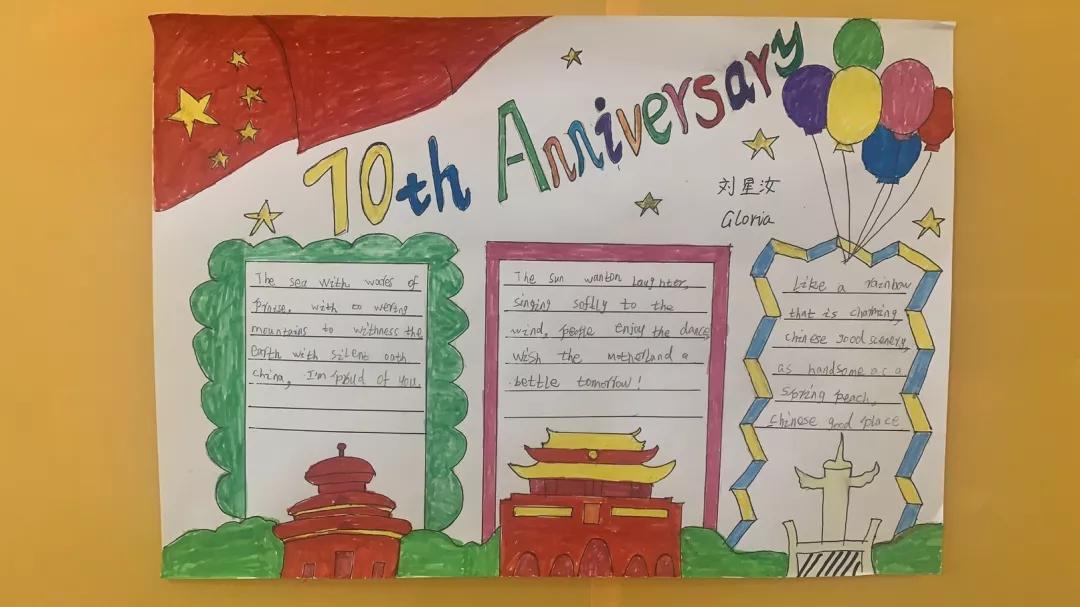 70th Anniversary
刘星汝
Gloria
The sea with waves of
praise, with to wering
mountains to withness the
earth with silent oath
china, I'm proud of you.
The sun wanton laughter,
singing softly to the
wind, people enjoy the dance
wish the motherland a
bettle tomorrow!
Like a rainbow
that is charming,
chinese good scenery,
as handsome as a
spring peach,
chinese good place